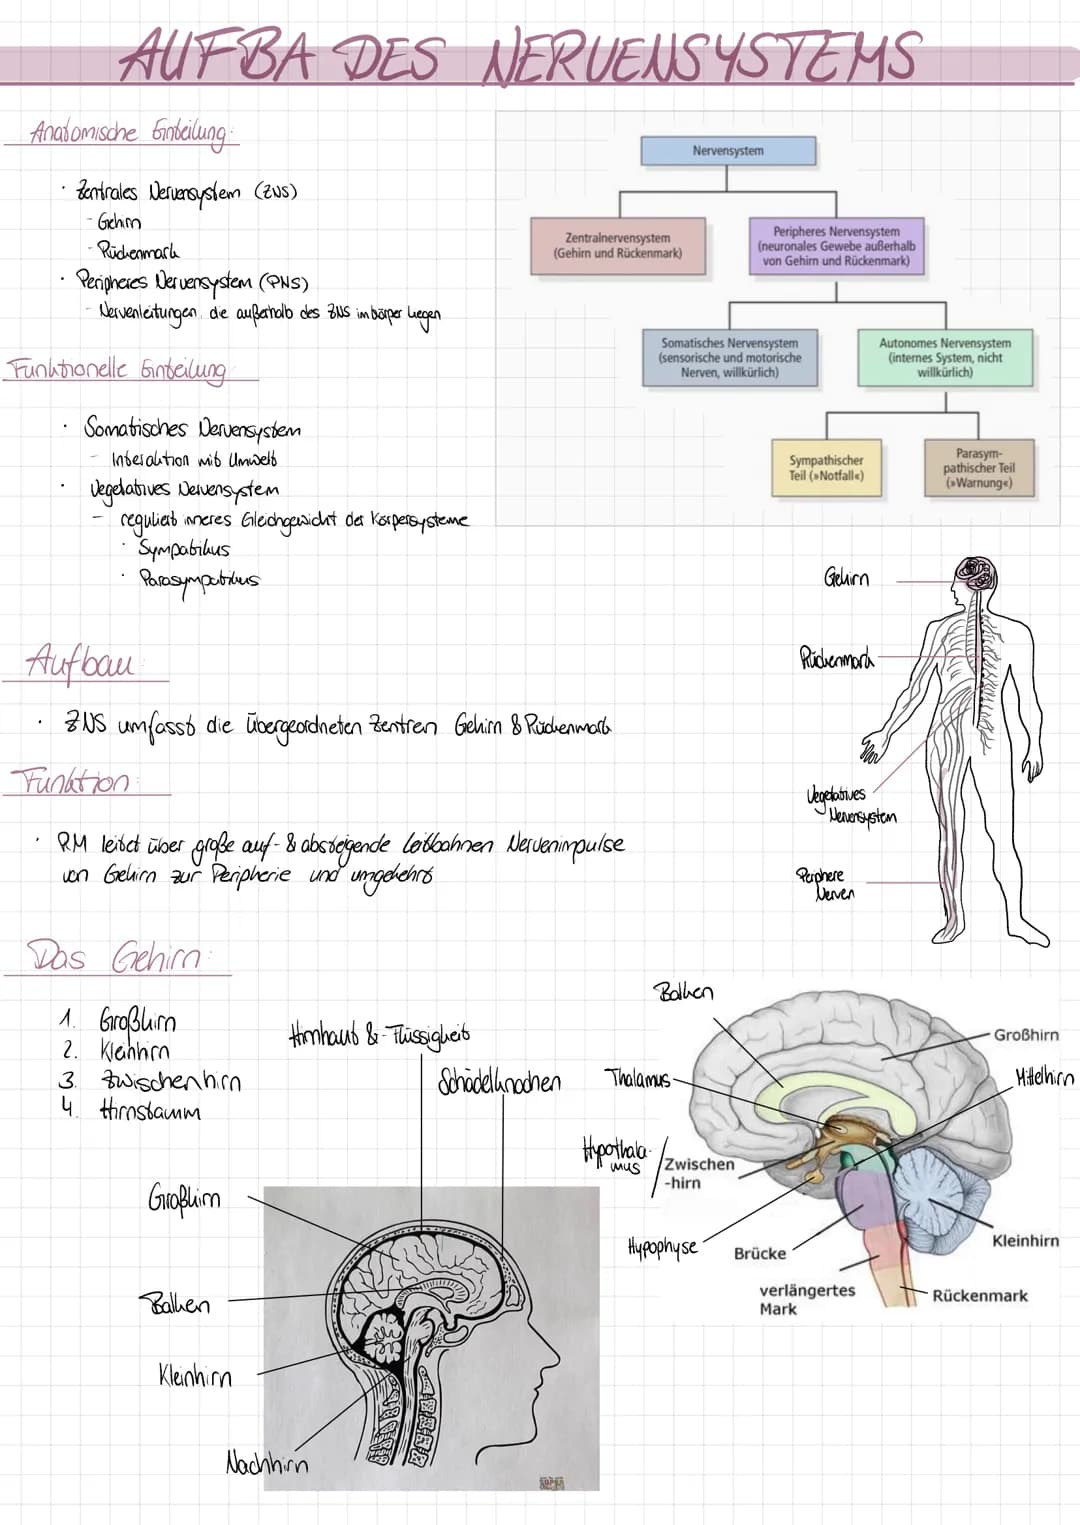 AUFBA DES NERVENSYSTEMS
Anatomische Einteilung:
· Zentrales Nervensystem (ZNS)
- Gehirn
- Rückenmark
· Peripheres Nervensystem (PNS)
- Nervenleitungen, die außerhalb des ZNS im Körper liegen
Funktionelle Einteilung
· Somatisches Nervensystem
- Interaktion mit Umwelt
· Vegetatives Nervensystem
- reguliert inneres Gleichgewicht der Körpersysteme
· Sympatikus
· Parasympatikus
Nervensystem
Zentralnervensystem
(Gehirn und Rückenmark)
Peripheres Nervensystem
(neuronales Gewebe außerhalb
von Gehirn und Rückenmark)
Somatisches Nervensystem
(sensorische und motorische
Nerven, willkürlich)
Autonomes Nervensystem
(internes System, nicht
willkürlich)
Sympathischer
Teil (»Notfall«)
Parasym-
pathischer Teil
(»Warnung«)
Gehirn
Rückenmark
Vegetatives
Nervensystem
Periphere
Nerven
Aufbau:
· ZNS umfasst die übergeordneten Zentren Gehirn & Rückenmark
Funktion:
· RM leitet über große auf- & absteigende Leitbahnen Nervenimpulse
von Gehirn zur Peripherie und umgekehrt
Das Gehirn:
1. Großhirn
2. Kleinhirn
3. Zwischenhirn
4. Hirnstamm
Hirnhaut & -Flüssigkeit
Schädelknochen
Großhirn
Balken
Kleinhirn
Nachhirn
Balken
Thalamus
Hypothala-
mus
Zwischen
-hirn
Hypophyse
Brücke
verlängertes
Mark
Großhirn
Mittelhirn
Kleinhirn
Rückenmark